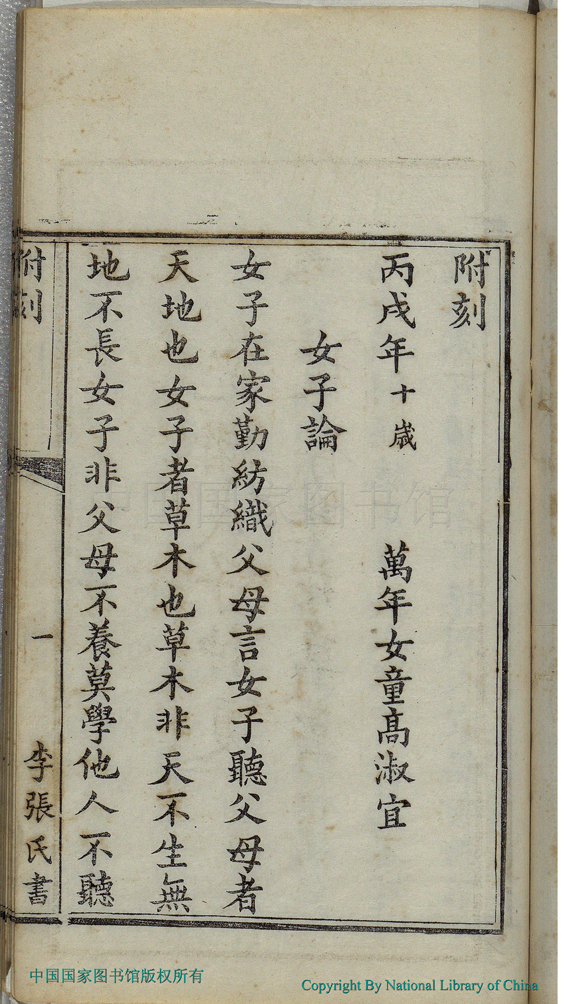 附刻
丙戌年十歲 萬年女童高淑宜
女子論
女子在家勤紡織父母言女子聽父母者
天地也女子者草木也草木非天不生無
地不長女子非父母不養莫學他人不聽
附刻 一 李張氏書
中国国家图书馆
中国国家图书馆版权所有
Copyright By National Library of China